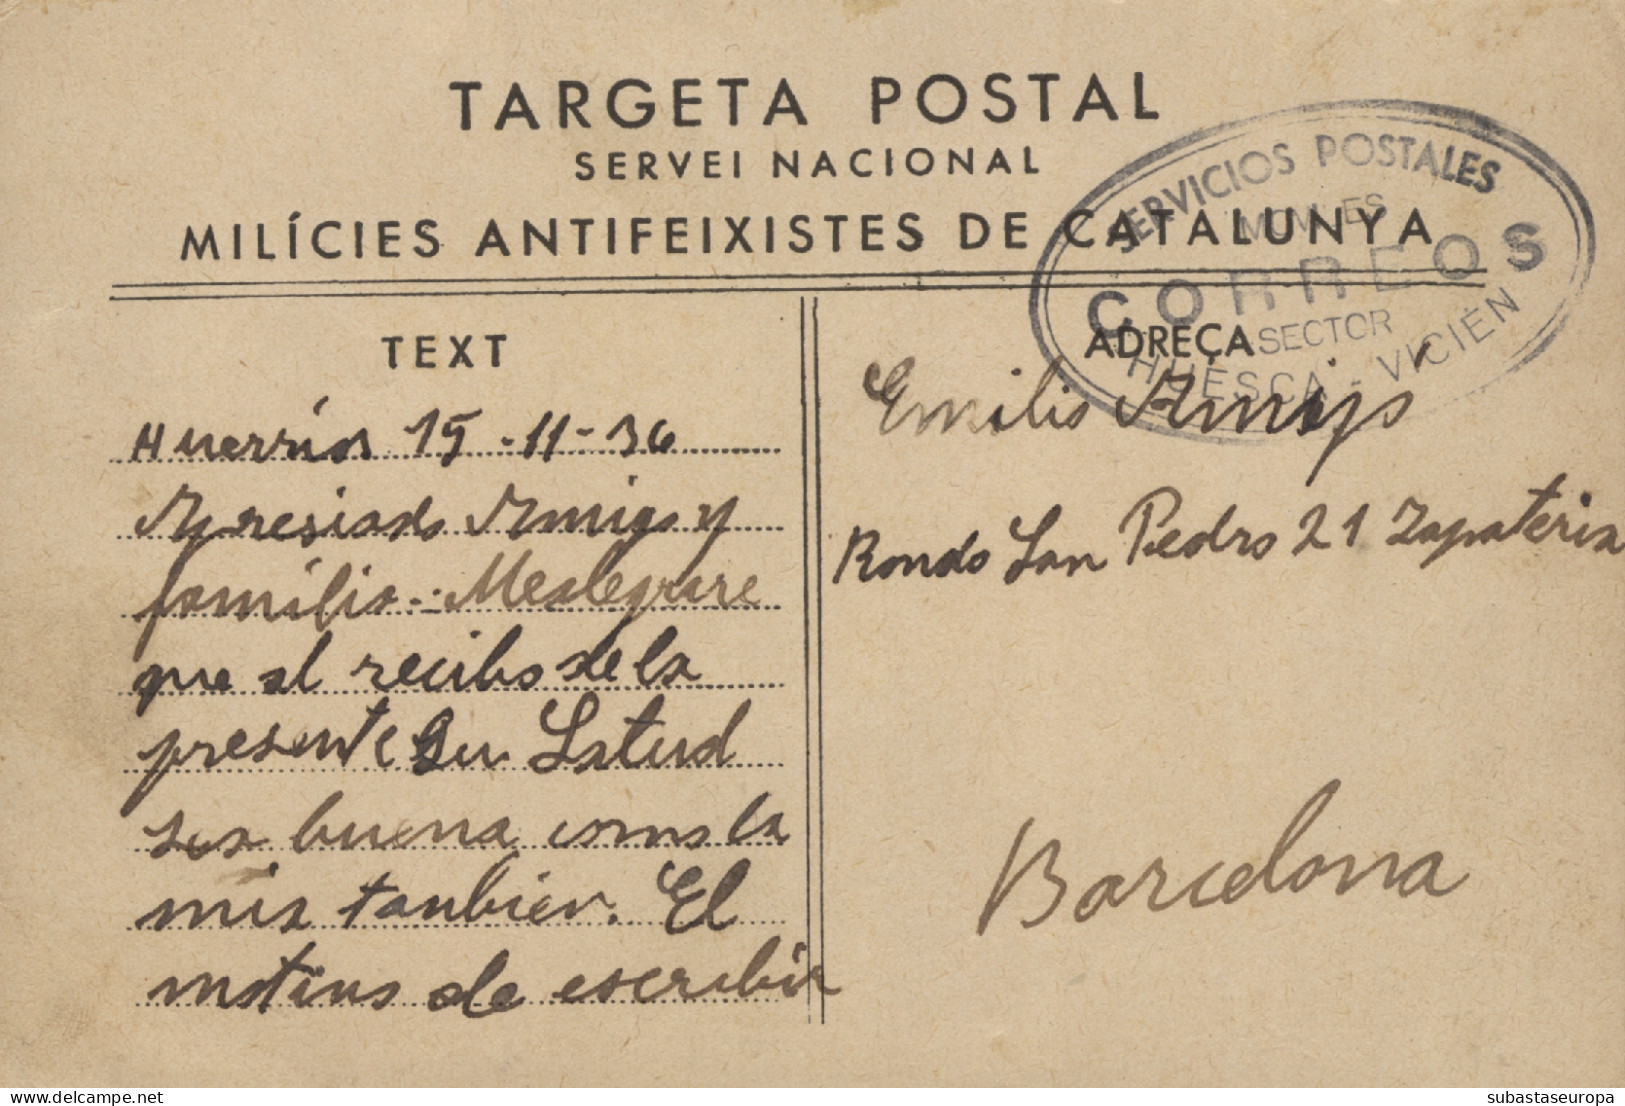 TARGETA POSTAL
SERVEI NACIONAL
MILÍCIES ANTIFEIXISTES DE CATALUNYA
SERVICIOS POSTALES
MOVILES
CORREOS
SECTOR
HUESCA - VICIÉN
TEXT
Huerrios 15-11-36
Apresiado Amigo y
familia.: Mealegrare
que al recibo de la
presente Su Salud
sea buena como la
mia tanbien. El
motivo de escribir
ADREÇA
Emilio Amigo
Rondo San Pedro 21 Zapateria
Barcelona
delcampe.net
subastaseuropa